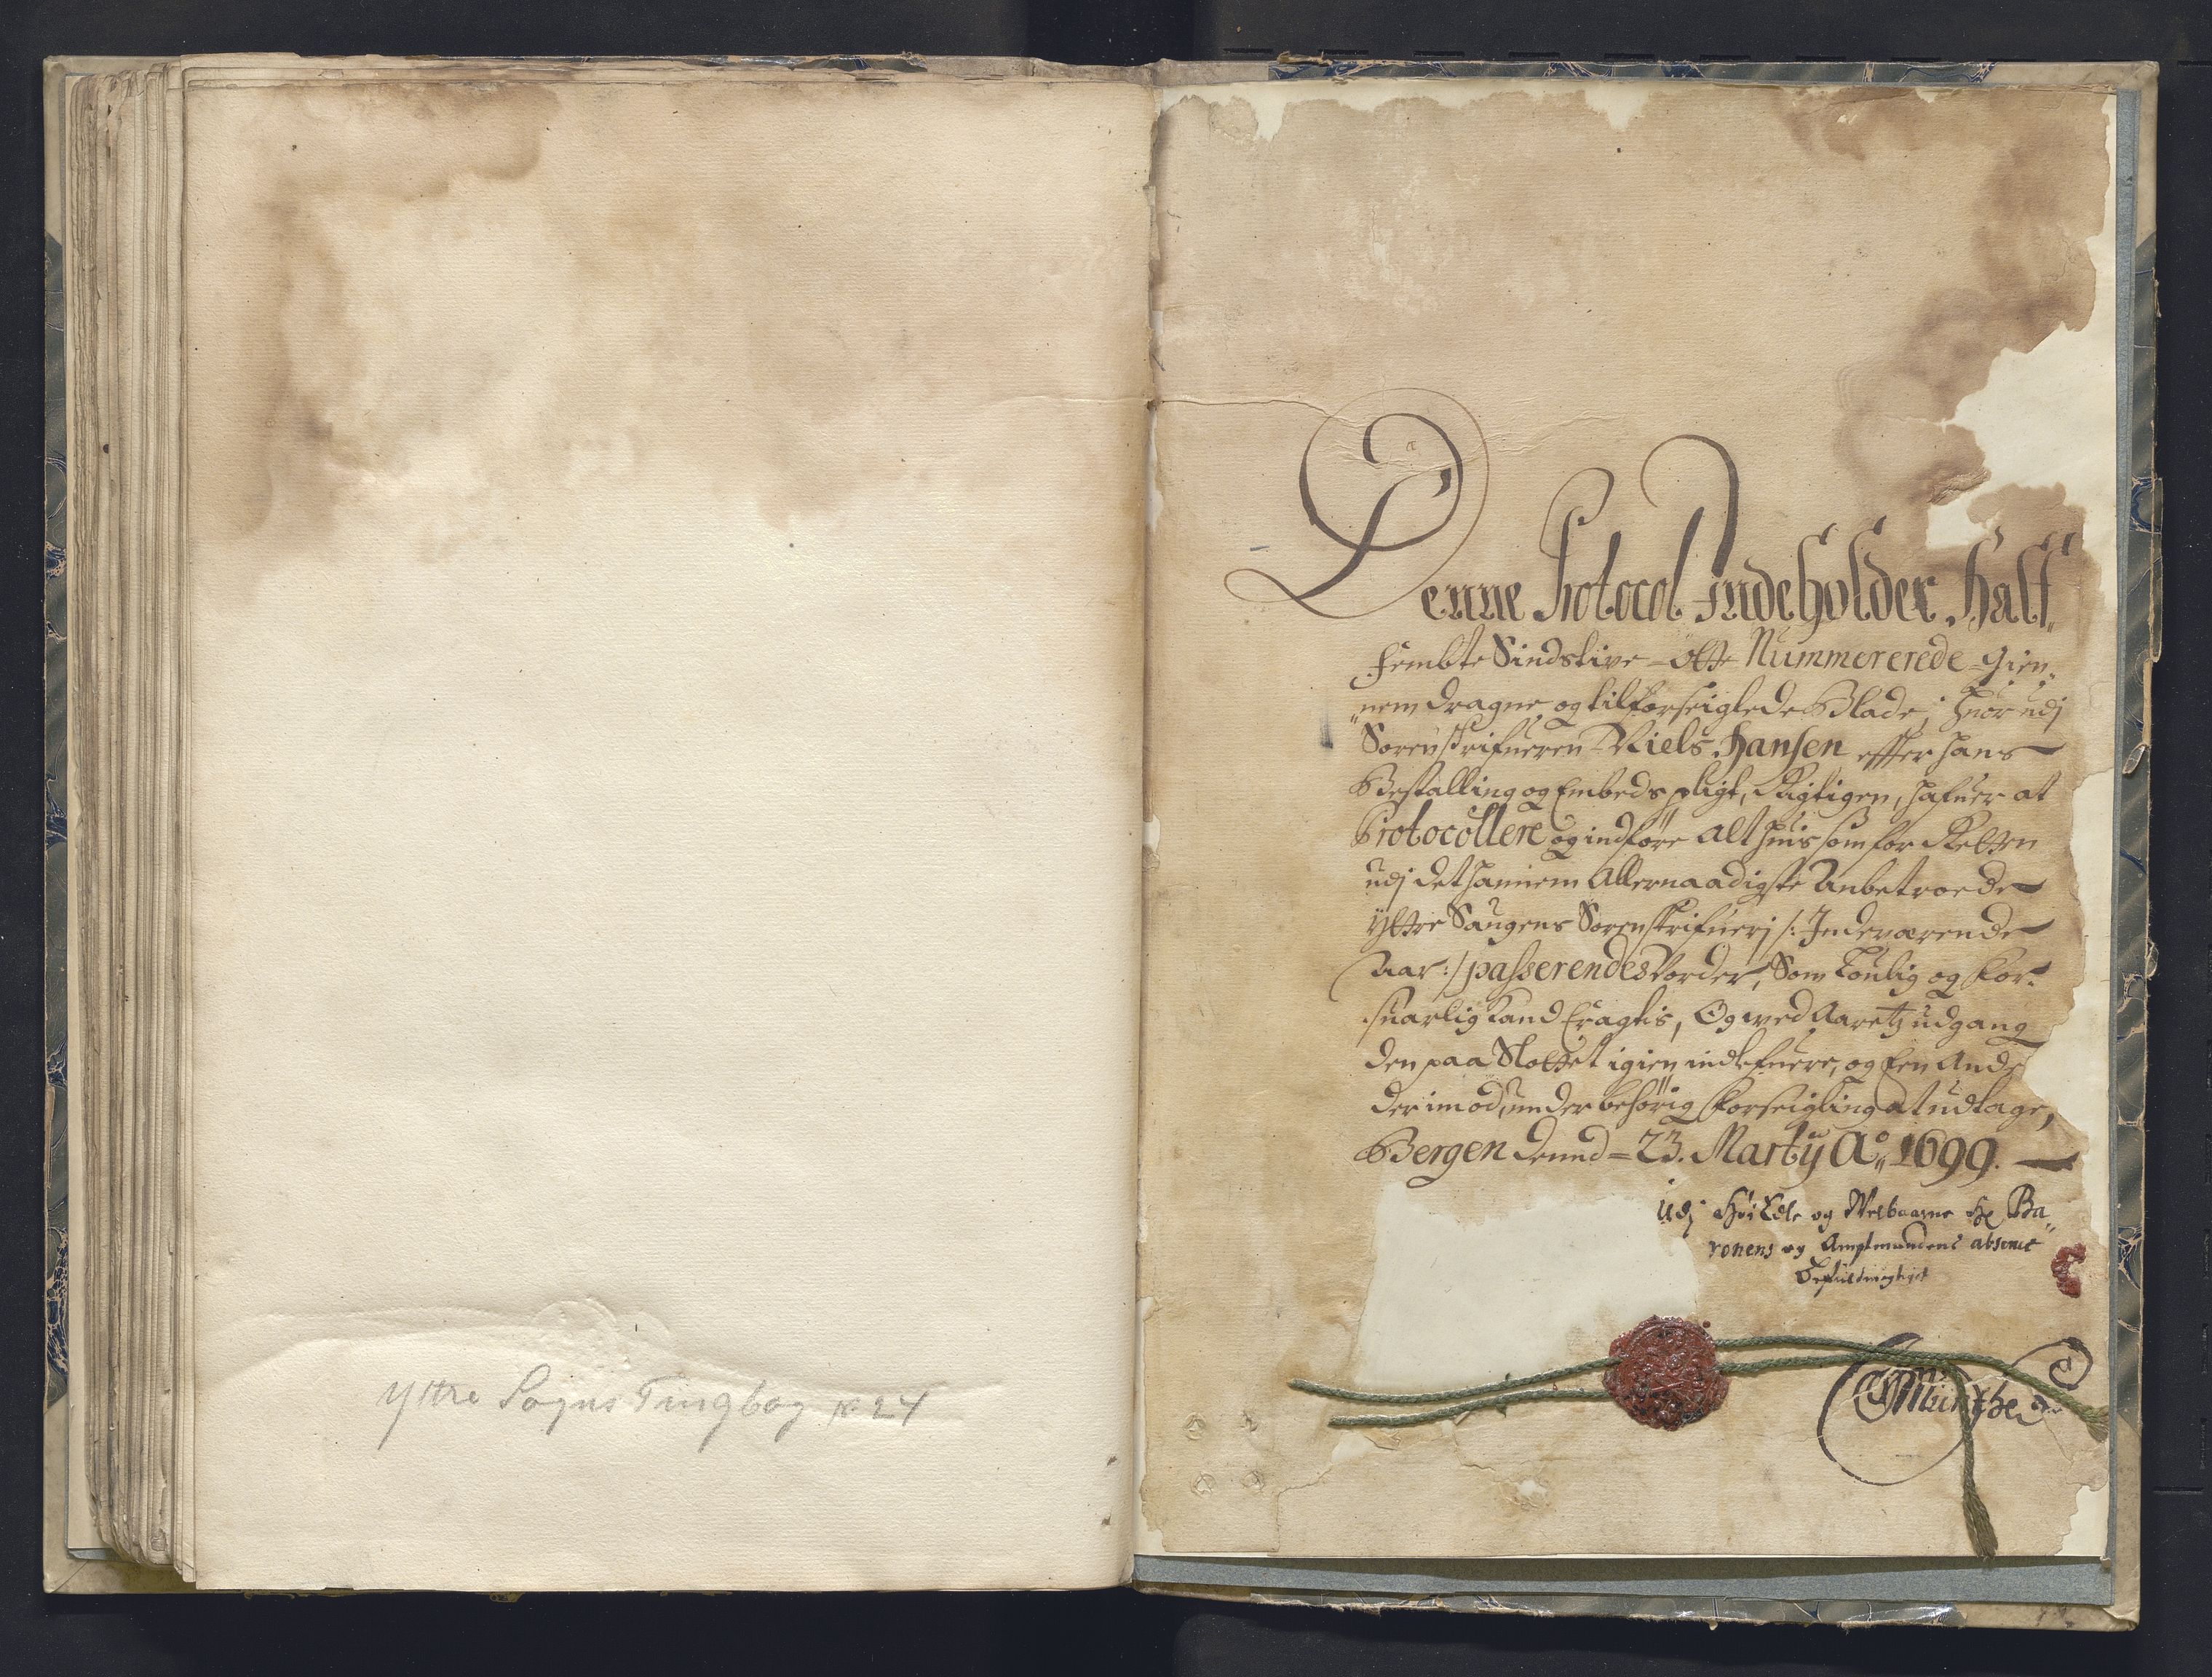 Yttre Sogns Tingbog No 24
Denne Protocol Indeholder, Half„
fembte Sindstive - Otte Nummererede - gien„
„nem dragne og til forseiglede Blade, huor udj
Sorenskrifueren Niels Hansen effter hans
Bestalling og Embeds pligt, Rigtigen, hafuer at
Protocollere og indføre alt huis som for Retten
udj det hannem Allernaadigste Anbetroede
Yttre Saugens Sorenskrifuerj /: Indeværende
Aar :/ passerendes vorder, Som loulig og For:
suarlig kand Eragtis, Og ved Aaretz udgang
den paa Slottet igien indlefuere, og Een Ande
derimod, under behørig Forseigling at udtage,
Bergen dend = 23. Martij Ao„ 1699.
Udj HöiEdle og Welbaarne Hr Ba„
ronens og Amptmandens absence
Befuldmegtiget
Münthe